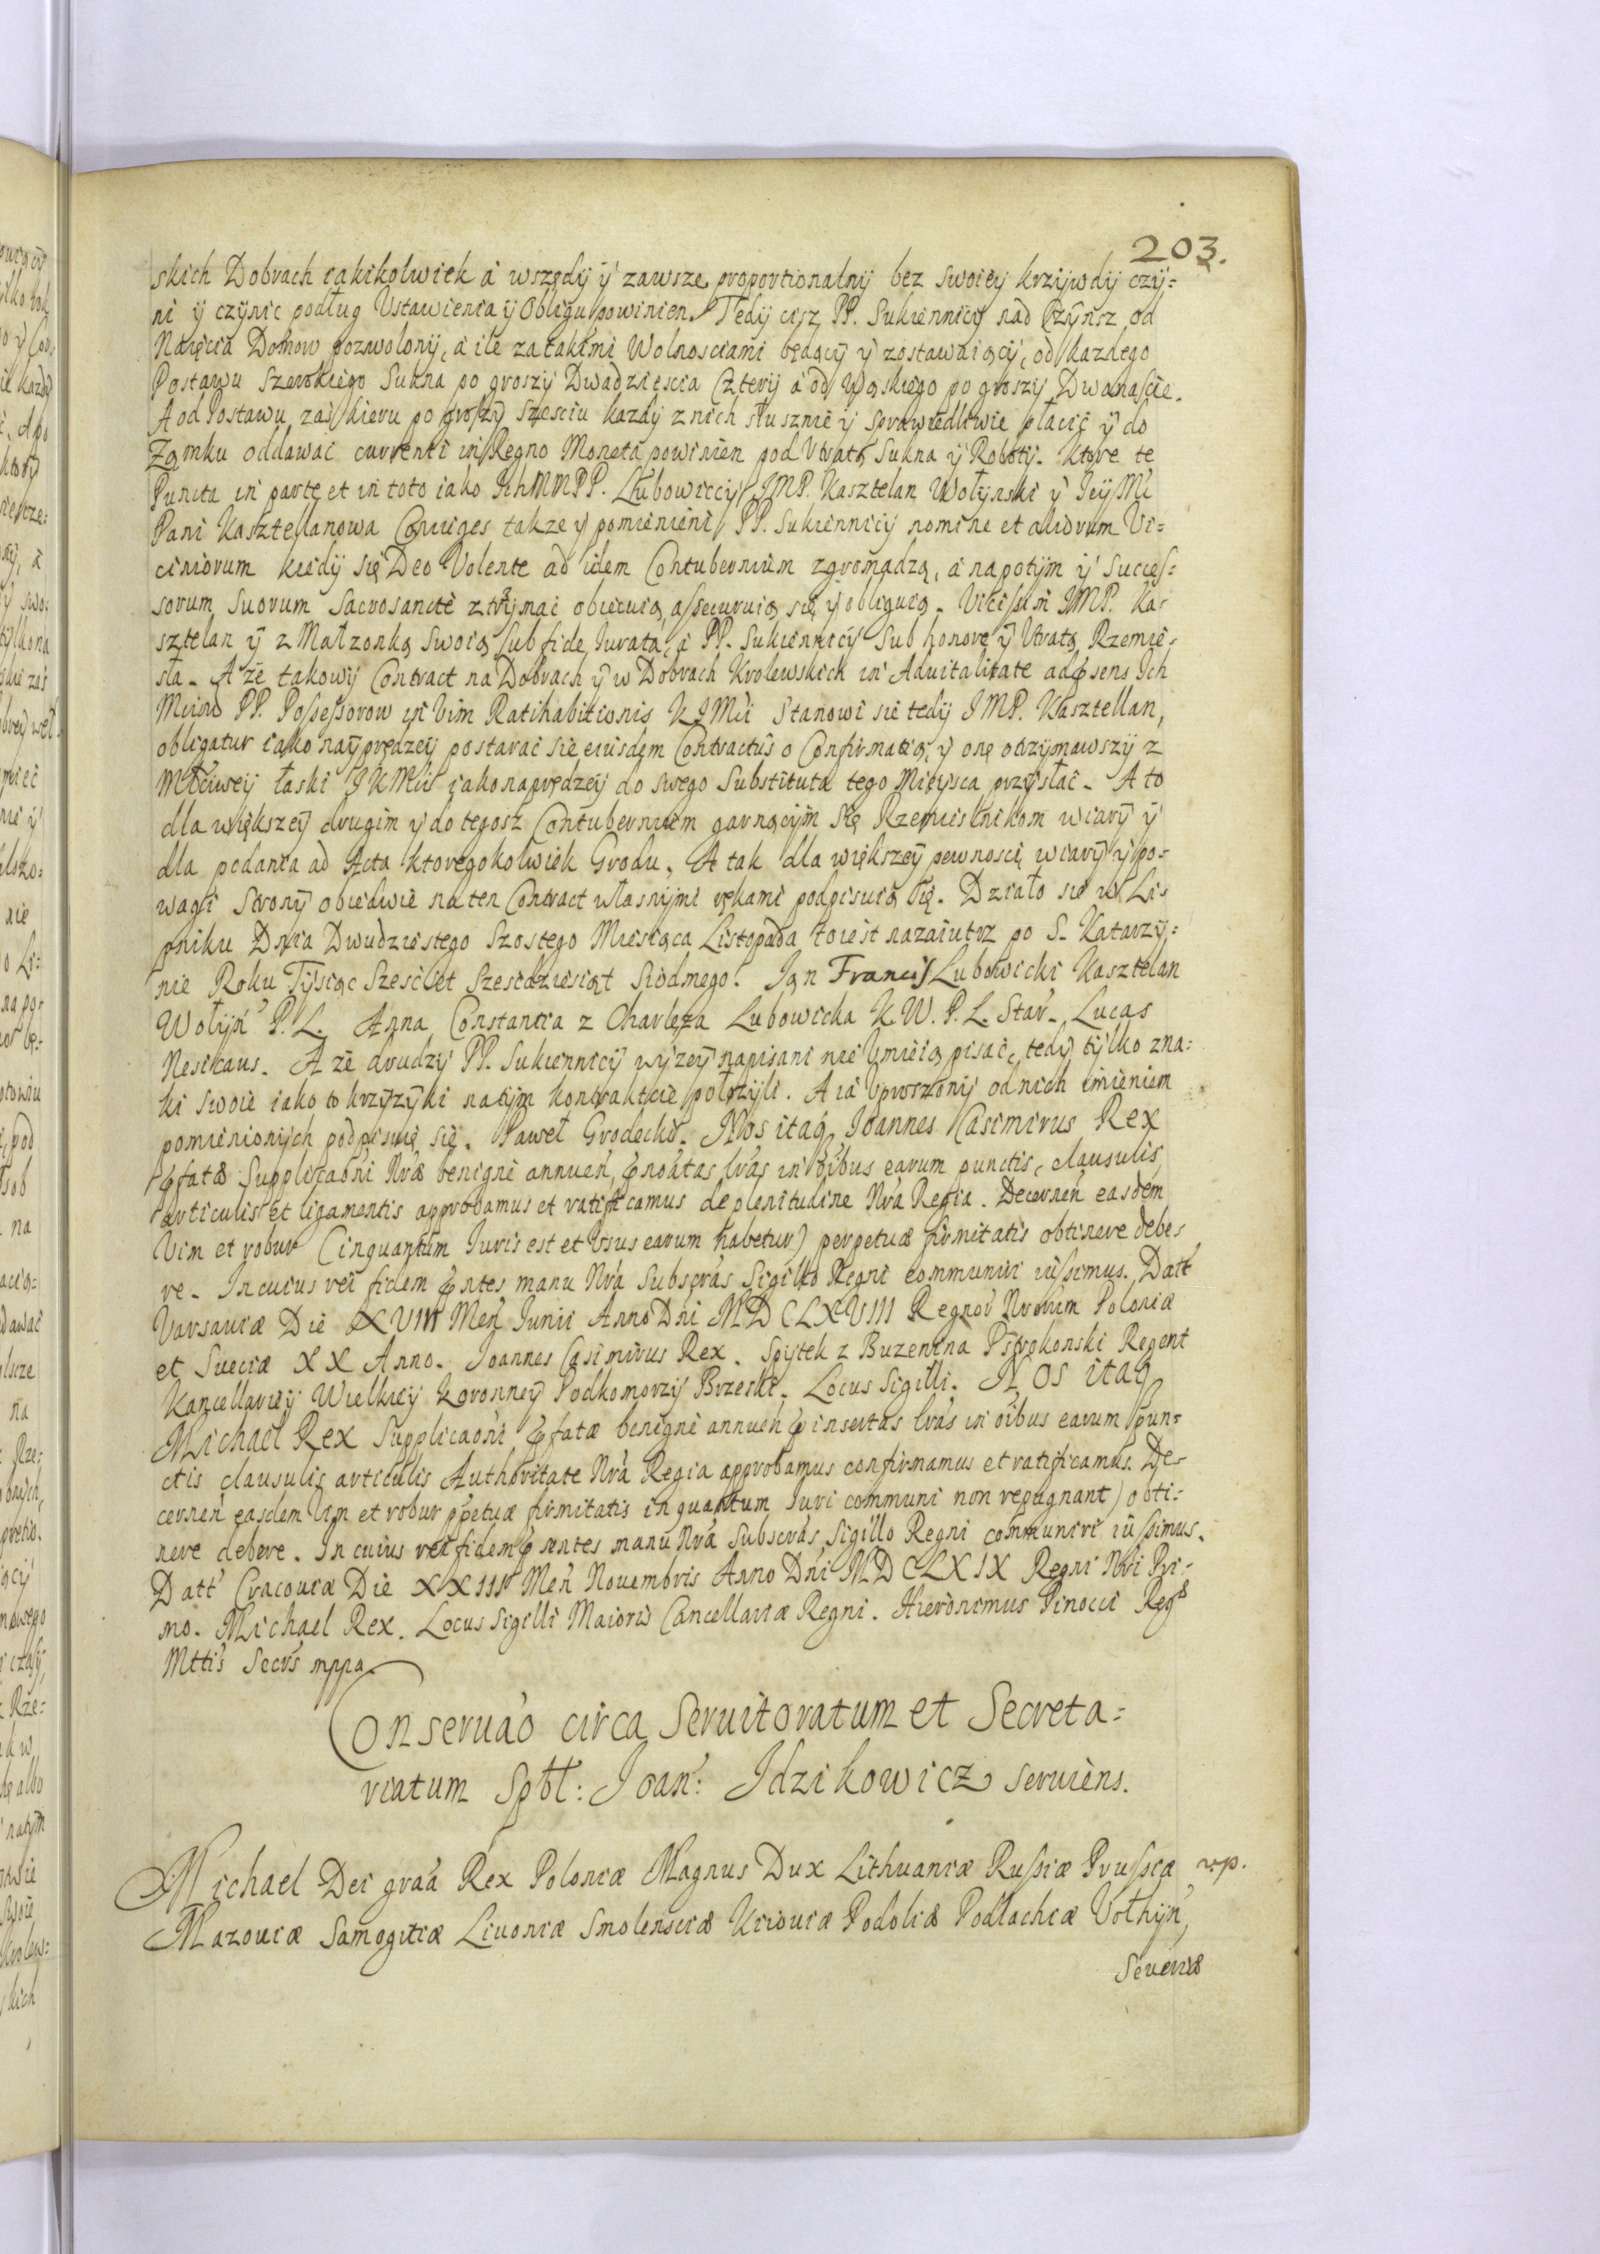 203.
skich Dobrach iakikolwiek á wszędÿ ÿ zawsze proportionalnÿ bez swoieÿ krzÿwdÿ czÿ=
ni ÿ czÿnić podług Vstawienia ÿ Obligu powinien. Tedÿ cisz PP. Sukiennicÿ nad Czÿnsz od
Naięcia Domow pozwolonÿ, á ile za takimi Wolnosciami będącÿ ÿ zostawaiącÿ, od kazdego
Postawu Szerokiego Sukna po groszÿ Dwadziescia Czterÿ á od Wąskiego po groszÿ Dwanascie.
A od Postawu zaś kieru po groszÿ szesciu kazdÿ z nich słusznie ÿ sprawiedliwie płacić ÿ do
Zamku oddawać currenti in Regno Moneta powinien pod Vtratą Sukna ÿ Robotÿ. Ktore te
Puncta in parte et in toto iako IchMMPP. Lubowiccÿ IMP. Kasztelan Wołÿnski ÿ IeÿMć
Pani Kasztellanowa Coniuges takze ÿ pomienieni PP. Sukiennicÿ nomine et aliorum Vi=
ciniorum kiedÿ się Deo Volente ad idem Contubernium zgromadzą, á napotÿm ÿ Success=
sorum suorum Sacrosancte ztrzÿmać obiecuią, assecuruią się ÿ obliguią. Vicissim IMP. Ka=
sztelan ÿ z Małzonką swoią sub fide Iurata, á PP. Sukiennicÿ sub honore ÿ Vtratą Rzemie=
sła. A że takowÿ Contract na Dobrach ÿ w Dobrach Krolewskich in Aduitalitate adpsens Ich
Mciow PP. Possessorow in Vim Ratihabitionis KJMci Stanowi sie tedÿ IMP. Kasztellan,
obligatur iako naÿprędzeÿ postarać sie eiusdem Contractus o Confirmatią ÿ onę otrzÿmawszÿ z
Mciweÿ łaski IKMci iako naprędzeÿ do swego Substituta tego Mieÿsca przÿsłać. A to
dla większeÿ drugim ÿ do tegosz Contubernium garnącÿm się Rzemieslnikom wiarÿ ÿ
dla podania ad Acta ktoregokolwiek Grodu. A tak dla większeÿ pewnosci wiarÿ ÿ po=
wagi stronÿ obiedwie na ten Contract własnÿmi rękami podpisuią się. Działo sie w Li=
pniku Dnia Dwudziestego Szostego Miesiąca Listopada to iest nazaiutrz po S. Katarzÿ=
nie Roku Tÿsiąc Szescset Szescdziesiąt Siodmego. Jan Francis Lubowicki Kasztelan
Wołÿń P. L. Anna Constantia z Charlęza Lubowicka K. W. P. L. Star. Lucas
Nesikaus. A że drudzÿ PP. Sukiennicÿ wÿzeÿ napisani nie Vmieią pisać, tedÿ tÿlko zna=
ki swoie iako to krzÿzÿki na tÿm kontrakcie połozÿli. A ia Vproszonÿ od nich imieniem
pomienionÿch podpisuię się. Paweł Grodecki. Nos itaq Joannes Casimirus Rex
pfatæ Supplicaoni Nræ benigne annuen pnoatas lras in oibus earum punctis, clausulis,
articulis et ligamentis approbamus et ratificamus de plenitudine Nra Regia. Decernen easdem
Vim et robur (inquantum Iuris est et Vsus earum habetur) perpetuæ firmitatis obtinere debe=
re. In cuius rei fidem pntes manu Nra Subscras Sigillo Regni communiri iussimus. Datt
Varsauiæ Die XVIII Men Junii Anno Dni MDCLXVIII Regnor Nrorum Poloniæ
et Sueciæ XX Anno. Joannes Casimirus Rex. Spÿtek z Buzenina Pstrokonski Regent
Kancellarieÿ Wielkieÿ Koronneÿ Podkomorzÿ Brzeski. Locus Sigilli. NOS itaq
Michael Rex Supplicaoni pfatæ benigne annuen pinsertas lras in oibus earum pun=
ctis clausulis articulis Authoritate Nra Regia approbamus confirmamus et ratificamus. De=
cernen easdem Vim et robur ppetuæ firmitatis in quantum Iuri communi non repugnant) obti=
nere debere. In cuius rei fidem psentes manu Nra Subscras Sigillo Regni communiri iussimus.
Datt Cracouiæ Die XXIII Men Nouembris Anno Dni MDCLXIX Regni Nri Pri=
mo. Michael Rex. Locus Sigilli Maioris Cancellariæ Regni. Hieronimus Pinocci Regæ
Mttis Secrs mppa.
Conseruao circa Seruitoratum et Secreta=
riatum Spbl: Joan: Jdzikowicz seruiens.
Michael Dei graa Rex Poloniæ Magnus Dux Lithuaniæ Russiæ Prussiæ rp.
Mazouiæ Samogitiæ Liuoniæ Smolensciæ Kiiouiæ Podoliæ Podlachiæ Volhÿn,
Seueriæ